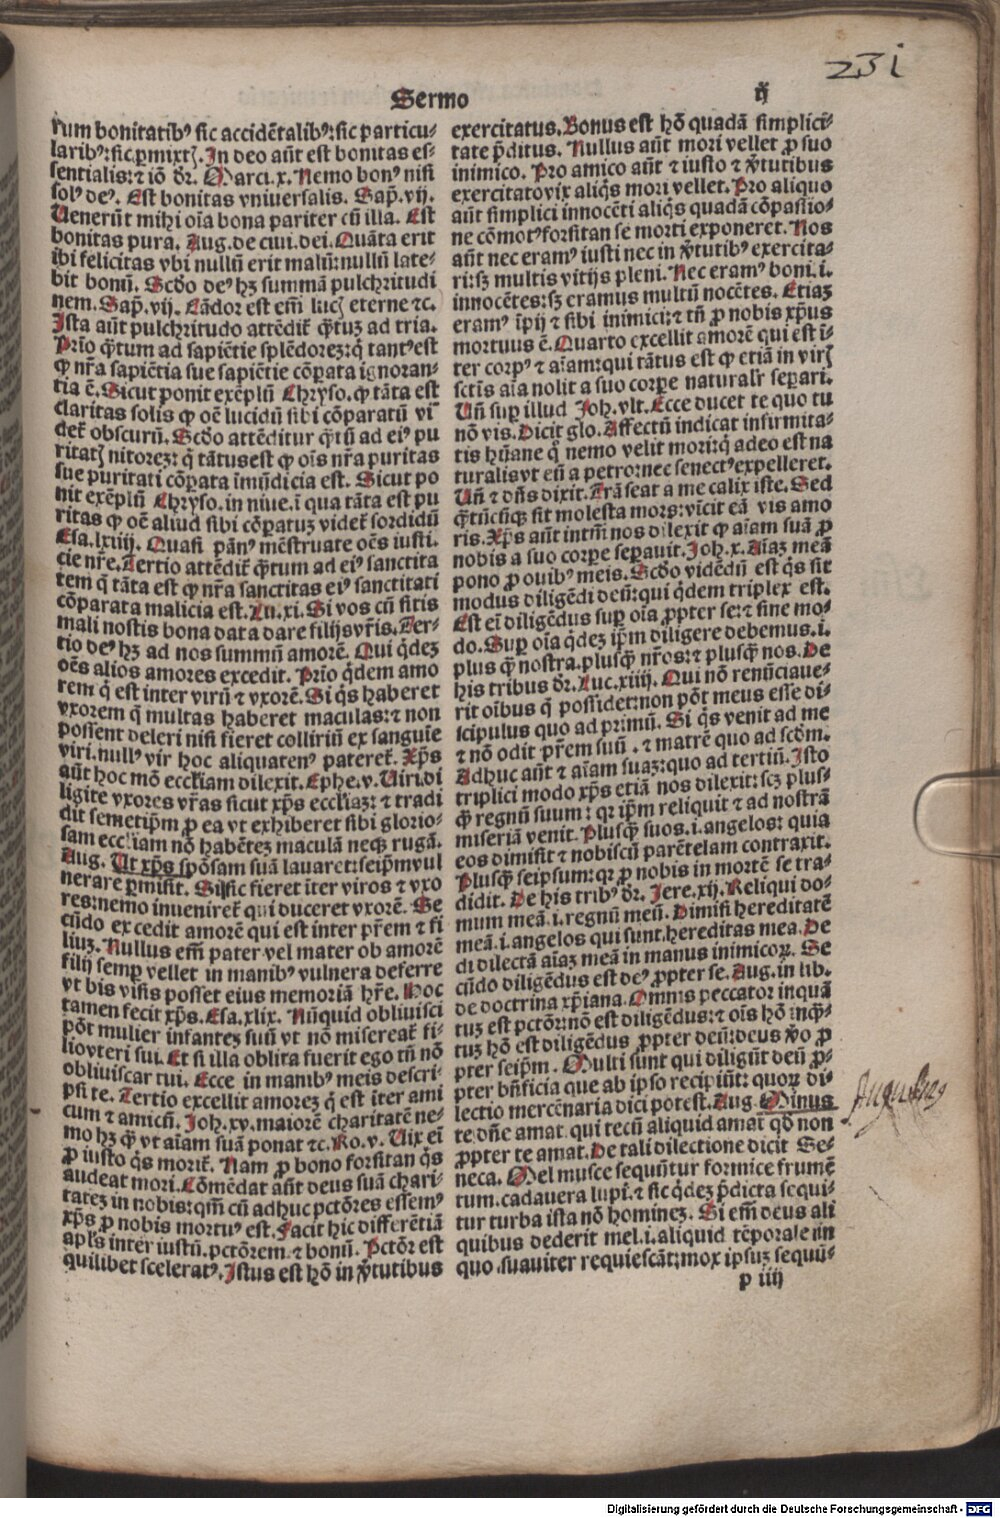 231
Sermo
ij
rum bonitatibꝰ sic accidētalibꝰ: sic particu⸗
laribꝰ: sic ꝑmixtꝭ. In deo aūt est bonitas es⸗
sentialis: ⁊ iō dr̄. Marci. x. Nemo bonꝰ nisi
solꝰ deꝰ. Est bonitas vniuersalis. Sap̄. vij.
Uenerūt mihi oīa bona pariter cū illa. Est
bonitas pura. Aug. de ciui. dei. Quāta erit
ibi felicitas vbi nullū erit malū: nullū late⸗
bit bonū. Scdo deꝰ hꝫ summā pulchritudi
nem. Sap̄. vij. Cādor est em̄ lucꝭ eterne ⁊c.
Ista aūt pulchritudo attēdit̄ q̄tuꝫ ad tria.
Prīo q̄tum ad sapiētie splēdoreꝫ: q̇ tantꝰ est
ꝙ nr̄a sapiētia sue sapiētie cōꝑata ignoran⸗
tia ē. Sicut ponit exēplū Chryso. ꝙ tāta est
claritas solis ꝙ oē lucidū sibi cōparatū vi
det̄ obscurū. Scdo attēditur q̄tū ad eiꝰ pu
ritatꝭ nitoreꝫ: q̇ tātus est ꝙ oīs nr̄a puritas
sue puritati cōꝑata īmūdicia est. Sicut po
nit exēplū Chryso. in niue. ī qua tāta est pu
ritas ꝙ oē aliud sibi cōꝑatuꝫ videt̄ sordidū
Esa. lxiiij. Quasi pānꝰ mēstruate oēs iusti.
cie nr̄e. Tertio attēdit̄ q̄tum ad eiꝰ sanctita
tem q̇ tāta est ꝙ nr̄a sanctitas eiꝰ sanctitati
cōparata malicia est. Lu. xi. Si vos cū sitis
mali nostis bona data dare filijs vr̄is. Ter⸗
tio deꝰ hꝫ ad nos summū amorē. Qui q̇deꝫ
oēs alios amores excedit. Prīo q̇dem amo
rem q̇ est inter virū ⁊ vxorē. Si q̇s haberet
vxorem q̄ multas haberet maculas: ⁊ non
possent deleri nisi fieret colliriū ex sanguīe
viri. nullꝰ vir hoc aliquatenꝰ pateret̄. Xp̄s
aūt hoc mō eccl̄iam dilexit. Ephe. v. Uiri di
ligite vxores vr̄as sicut xp̄s eccl̄iaꝫ: ⁊ tradi
dit semetip̄m ꝓ ea vt exhiberet sibi glorio⸗
sam eccl̄iam nō habēteꝫ maculā neqꝫ rugā.
Aug. Ut xp̄s spōsam suā lauaret: seip̄m vul
nerare ꝑmisit. Si sic fieret iter viros ⁊ vxo
res: nemo inueniret̄ qui duceret vxorē. Se
cūdo excedit amorē qui est inter pr̄em ⁊ fi
liuꝫ. Nullus em̄ pater vel mater ob amorē
filij semꝑ vellet in manibꝰ vulnera deferre
vt bis visis posset eius memoriā hr̄e. Hoc
tamen fecit xp̄s. Esa. xlix. Nūquid obliuisci
pōt mulier infanteꝫ suū vt nō misereat̄ fi⸗
lio vteri sui. Et si illa oblita fuerit ego tn̄ nō
obliuiscar tui. Ecce in manibꝰ meis descri⸗
psi te. Tertio excellit amoreꝫ q̇ est iter ami
cum ⁊ amicū. Joh. xv. maiorē charitatē ne⸗
mo hꝫ q̄ vt aīam suā ponat ⁊c. Ro. v. Uix eī
ꝓ iusto q̇s morit̄. Nam ꝓ bono forsitan q̇s
audeat mori. Cōmēdat aūt deus suā chari⸗
tateꝫ in nobis: qm̄ cū adhuc pctōres essemꝰ
xp̄s ꝓ nobis mortuꝰ est. Facit hic differētiā
apl̄s inter iustū. pctōrem ⁊ bonū. Pctōr est
quilibet sceleratꝰ. Iustus est hō in v̄tutibus
exercitatus. Bonus est hō quadā simplici⸗
tate p̄ditus. Nullus aūt mori vellet ꝓ suo
inimico. Pro amico aūt ⁊ iusto ⁊ v̄tutibus
exercitato vix aliq̇s mori vellet. Pro aliquo
aūt simplici innocēti aliq̇s quadā cōpassio⸗
ne cōmotꝰ forsitan se morti exponeret. Nos
aūt nec eramꝰ iusti nec in v̄tutibꝰ exercita⸗
ri: sꝫ multis vitijs pleni. Nec eramꝰ boni. i.
innocētes: sꝫ eramus multū nocētes. Etiaꝫ
eramꝰ īpij ⁊ sibi inimici: ⁊ tn̄ ꝓ nobis xp̄us
mortuus ē. Quarto excellit amorē qui est ī⸗
ter corpꝰ ⁊ aīam: qui tātus est ꝙ etiā in virꝭ
sctīs aīa nolit a suo corꝑe naturalr̄ seꝑari.
Un̄ suꝑ illud Joh. vlt. Ecce ducet te quo tu
nō vis. Dicit glo. Affectū indicat infirmita⸗
tis hūane q̇ nemo velit mori: q̇ adeo est na
turalis vt eū a petro: nec senectꝰ expelleret.
Un̄ ⁊ dn̄s dixit. Trāseat a me calix iste. Sed
q̄tūcūqꝫ sit molesta mors: vīcit eā vis amo
ris. Xp̄s aūt intm̄ nos dilexit ꝙ aīam suā ꝓ
nobis a suo corꝑe seꝑauit. Joh. x. Aīaꝫ meā
pono ꝓ ouibꝰ meis. Scdo vidēdū est q̇s sit
modus diligēdi deū: qui q̇dem triplex est.
Est eī diligēdus suꝑ oīa ꝓpter se: ⁊ sine mo⸗
do. Suꝑ oīa q̇deꝫ ip̄m diligere debemus. i.
plus q̄ nostra. plusq̄ nr̄os: ⁊ plusq̄ nos. De
his tribus dr̄. Luc. xiiij. Qui nō renūciaue⸗
rit oībus q̄ possidet: non pōt meus esse di⸗
scipulus quo ad primū. Si q̇s venit ad me
⁊ nō odit pr̄em suū . ⁊ matrē quo ad scdm̄.
Adhuc aūt ⁊ aīam suaꝫ: quo ad tertiū. Isto
triplici modo xp̄s etiā nos dilexit: scꝫ plus⸗
q̄ regnū suum: qꝛ ip̄m reliquit ⁊ ad nostrā
miseriā venit. Plusq̄ suos. i. angelos: quia
eos dimisit ⁊ nobiscū parētelam contraxit.
Plusq̄ seipsum: qꝛ ꝓ nobis in mortē se tra⸗
didit. De his tribꝰ dr̄. Jere. xij. Reliqui do⸗
mum meā. i. regnū meū. Dimisi hereditatē
meā. i. angelos qui sunt hereditas mea. De
di dilectā aīaꝫ meā in manus inimicoꝝ. Se
cūdo diligēdus est deꝰ ꝓpter se. Aug. in lib.
de doctrina xp̄iana. Omnis peccator inquā
tuꝫ est pctōr: nō est diligēdus: ⁊ oīs hō inq̄⸗
tuꝫ hō est diligēdus ꝓpter deū: deus v̄o ꝓ
pter seip̄m. Multi sunt qui diligūt deū ꝓ⸗
pter bn̄ficia que ab ipso recipiūt: quoꝝ di⸗
lectio mercēnaria dici potest. Aug. Minus
te dn̄e amat qui tecū aliquid amat qd̄ non
ꝓpter te amat. De tali dilectione dicit Se⸗
neca. Mel musce sequūtur formice frumē
tum. cadauera lupi. ⁊ sic q̇deꝫ p̄dicta sequi⸗
tur turba ista nō homineꝫ. Si em̄ deus ali
quibus dederit mel. i. aliquid tēporale in
quo suauiter requiescāt: mox ipsuꝫ sequū⸗
p iiij
Augustinus
Digitalisierung gefördert durch die Deutsche Forschungsgemeinschaft - DFG